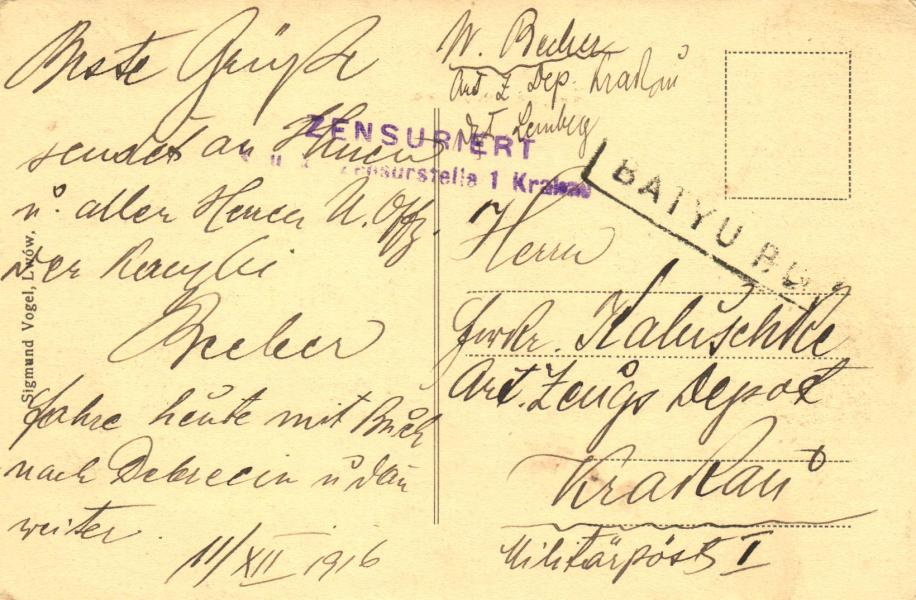 Beste Grüße
sendet an Ihnen
u. allen Herren U. Offz.
der Kanzlei
Becher
fahre heute mit
nach Debrecin u dan
weiter.
11/XII 1916
Sigmund Vogel, Lwów.
W. Becher
Art. Z. Dep. Krakau
dzt Lemberg
ZENSURIERT
Zensurstelle 1 Krakau
BATYU P
Herrn
Kaluschke
Art. Zeugs Depot
Krakau
Militärpost I